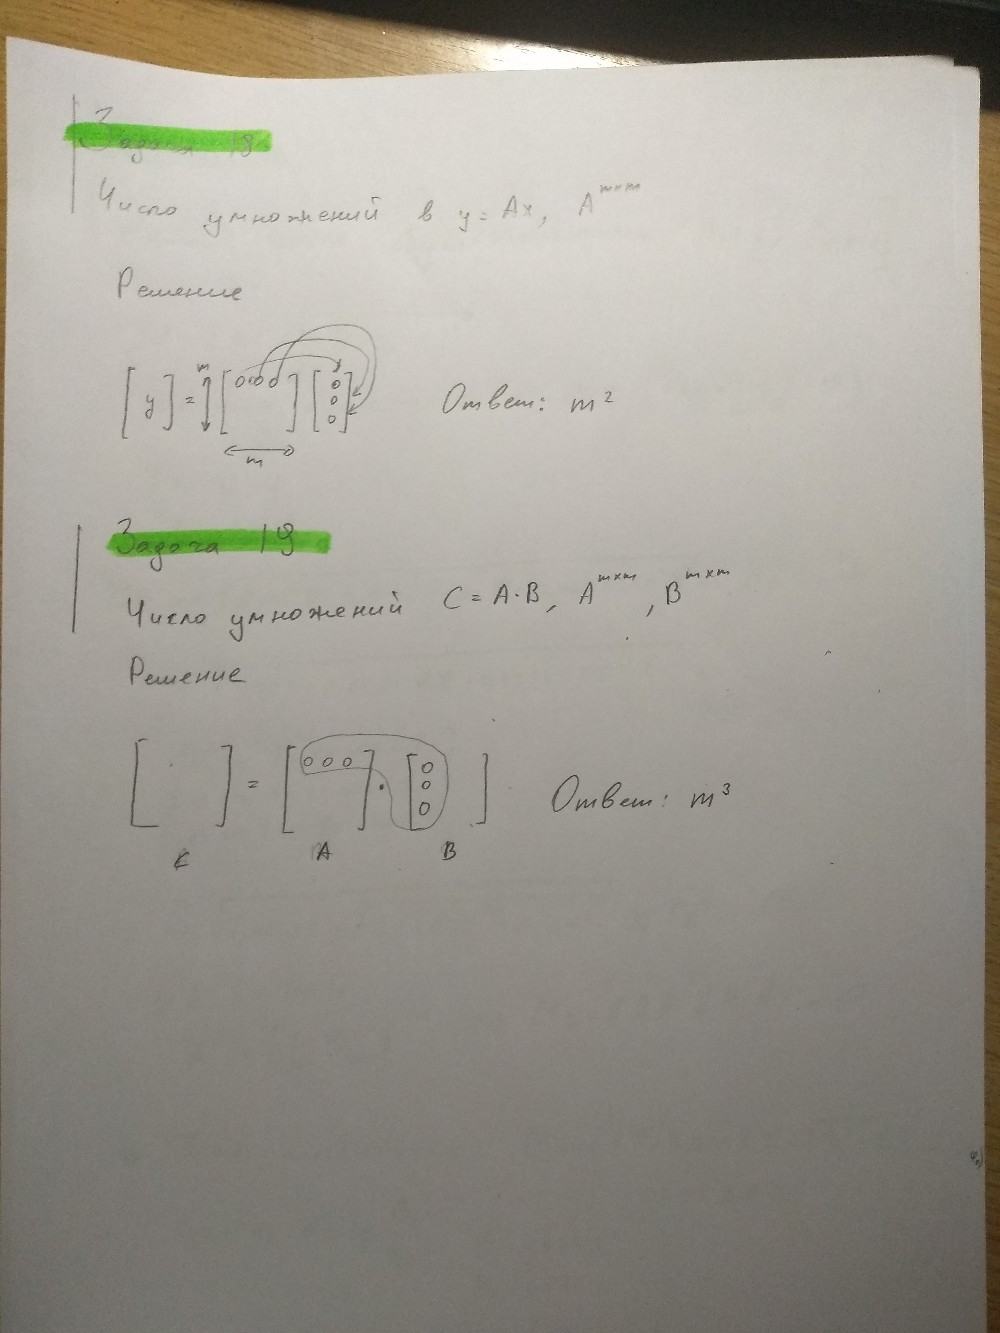 Задача 18
Число умножений в y = Ax, A^{m×m}
Решение
[ y ] = m [ o o o ] [ o o o ] Ответ: m²
m
Задача 19
Число умножений C = A·B, A^{m×m}, B^{m×m}
Решение
[ ] = [ o o o ] · [ o o o ] Ответ: m³
C A B